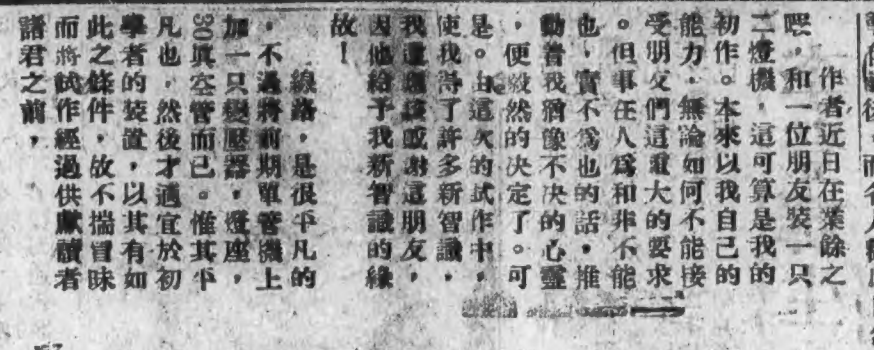 作者近日在業餘之
暇，和一位朋友裝一只
二燈機，這可算是我的
初作。本來以我自己的
能力，無論如何不能接
受朋友們這重大的要求
。但事在人爲和非不能
也，實不爲也的話，推
動着我猶像不决的心靈
，便毅然的决定了。可
是。由這次的試作中，
使我得了許多新智識，
我還應該感謝這朋友，
因他給予我新智識的緣
故！
線路，是很平凡的
，不過將前期單管機上
加一只變壓器，燈座，
30眞空管而已。惟其平
凡也，然後才適宜於初
學者的裝置，以其有如
此之條件，故不揣冒昧
而將試作經過供獻讀者
諸君之前，